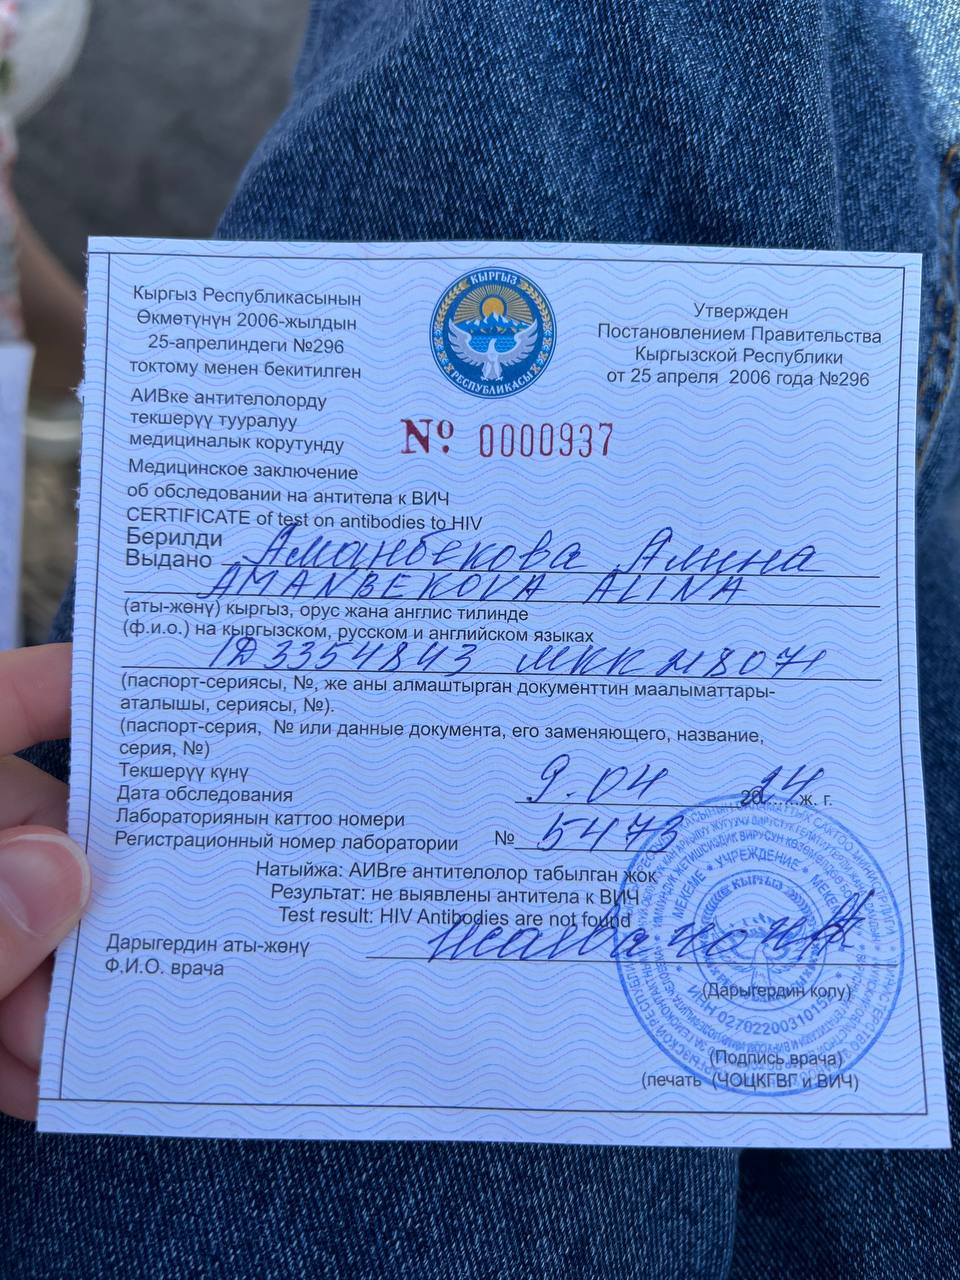 Кыргыз Республикасынын
Өкмөтүнүн 2006-жылдын
25-апрелиндеги №296
токтому менен бекитилген
КЫРГЫЗ
РЕСПУБЛИКАСЫ
Утвержден
Постановлением Правительства
Кыргызской Республики
от 25 апреля 2006 года №296
АИВке антителолорду
текшерүү тууралуу
медициналык корутунду
№ 0000937
Медицинское заключение
об обследовании на антитела к ВИЧ
CERTIFICATE of test on antibodies to HIV
Берилди
Выдано Аманбекова Алина
AMANBEKOVA ALINA
(аты-жөнү) кыргыз, орус жана англис тилинде
(ф.и.о.) на кыргызском, русском и английском языках
ID3354843 МКК
(паспорт-сериясы, №, же аны алмаштырган документтин маалыматтары-
аталышы, сериясы, №).
(паспорт-серия, № или данные документа, его заменяющего, название,
серия, №)
Текшерүү күнү
Дата обследования 9.04 2024 ж. г.
Лабораториянын каттоо номери
Регистрационный номер лаборатории № 5473
Натыйжа: АИВге антителолор табылган жок
Результат: не выявлены антитела к ВИЧ
Test result: HIV Antibodies are not found
Дарыгердин аты-жөнү
Ф.И.О. врача
(Дарыгердин колу)
(Подпись врача)
(печать (ЧОЦКГВГ и ВИЧ)
МЕКЕМЕ * УЧРЕЖДЕНИЕ